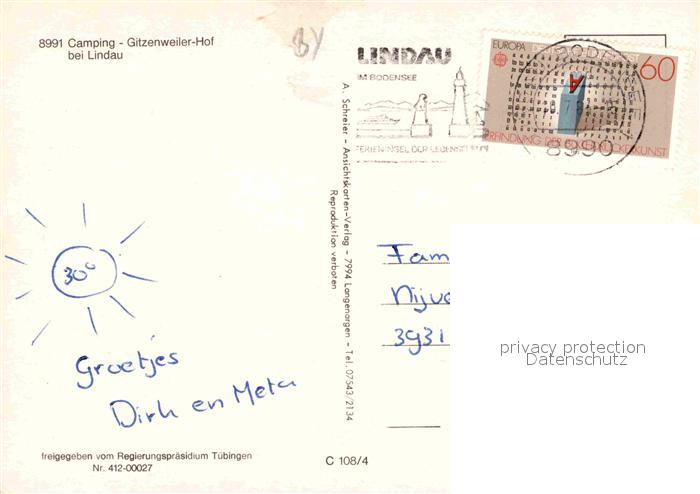 8991 Camping - Gitzenweiler-Hof
bei Lindau
BY
LINDAU
IM BODENSEE
EUROPA
60
ERFINDUNG DER BUCHDRUCKERKUNST
8990
A. Schreier - Ansichtskarten-Verlag - 7994 Langenargen - Tel. 07543/2134
Reproduktion verboten
30°
Groetjes
Dirk en Meta
Fam
3931
privacy protection
Datenschutz
freigegeben vom Regierungspräsidium Tübingen
Nr. 412-00027
C 108/4